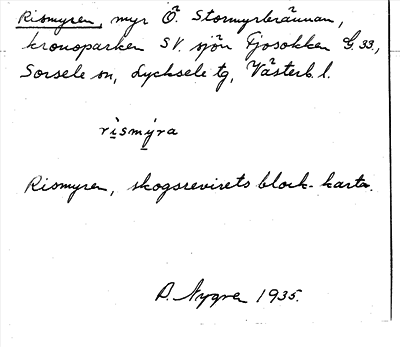 Rismyren, myr Ö. Stormyrbrännan,
kronoparken SV. sjön Fjosokken G. 33,
Sorsele sn, Lycksele tg, Västerb. l.
rismýra
Rismyren, skogsrevirets block-karta.
A. Nygren 1935.